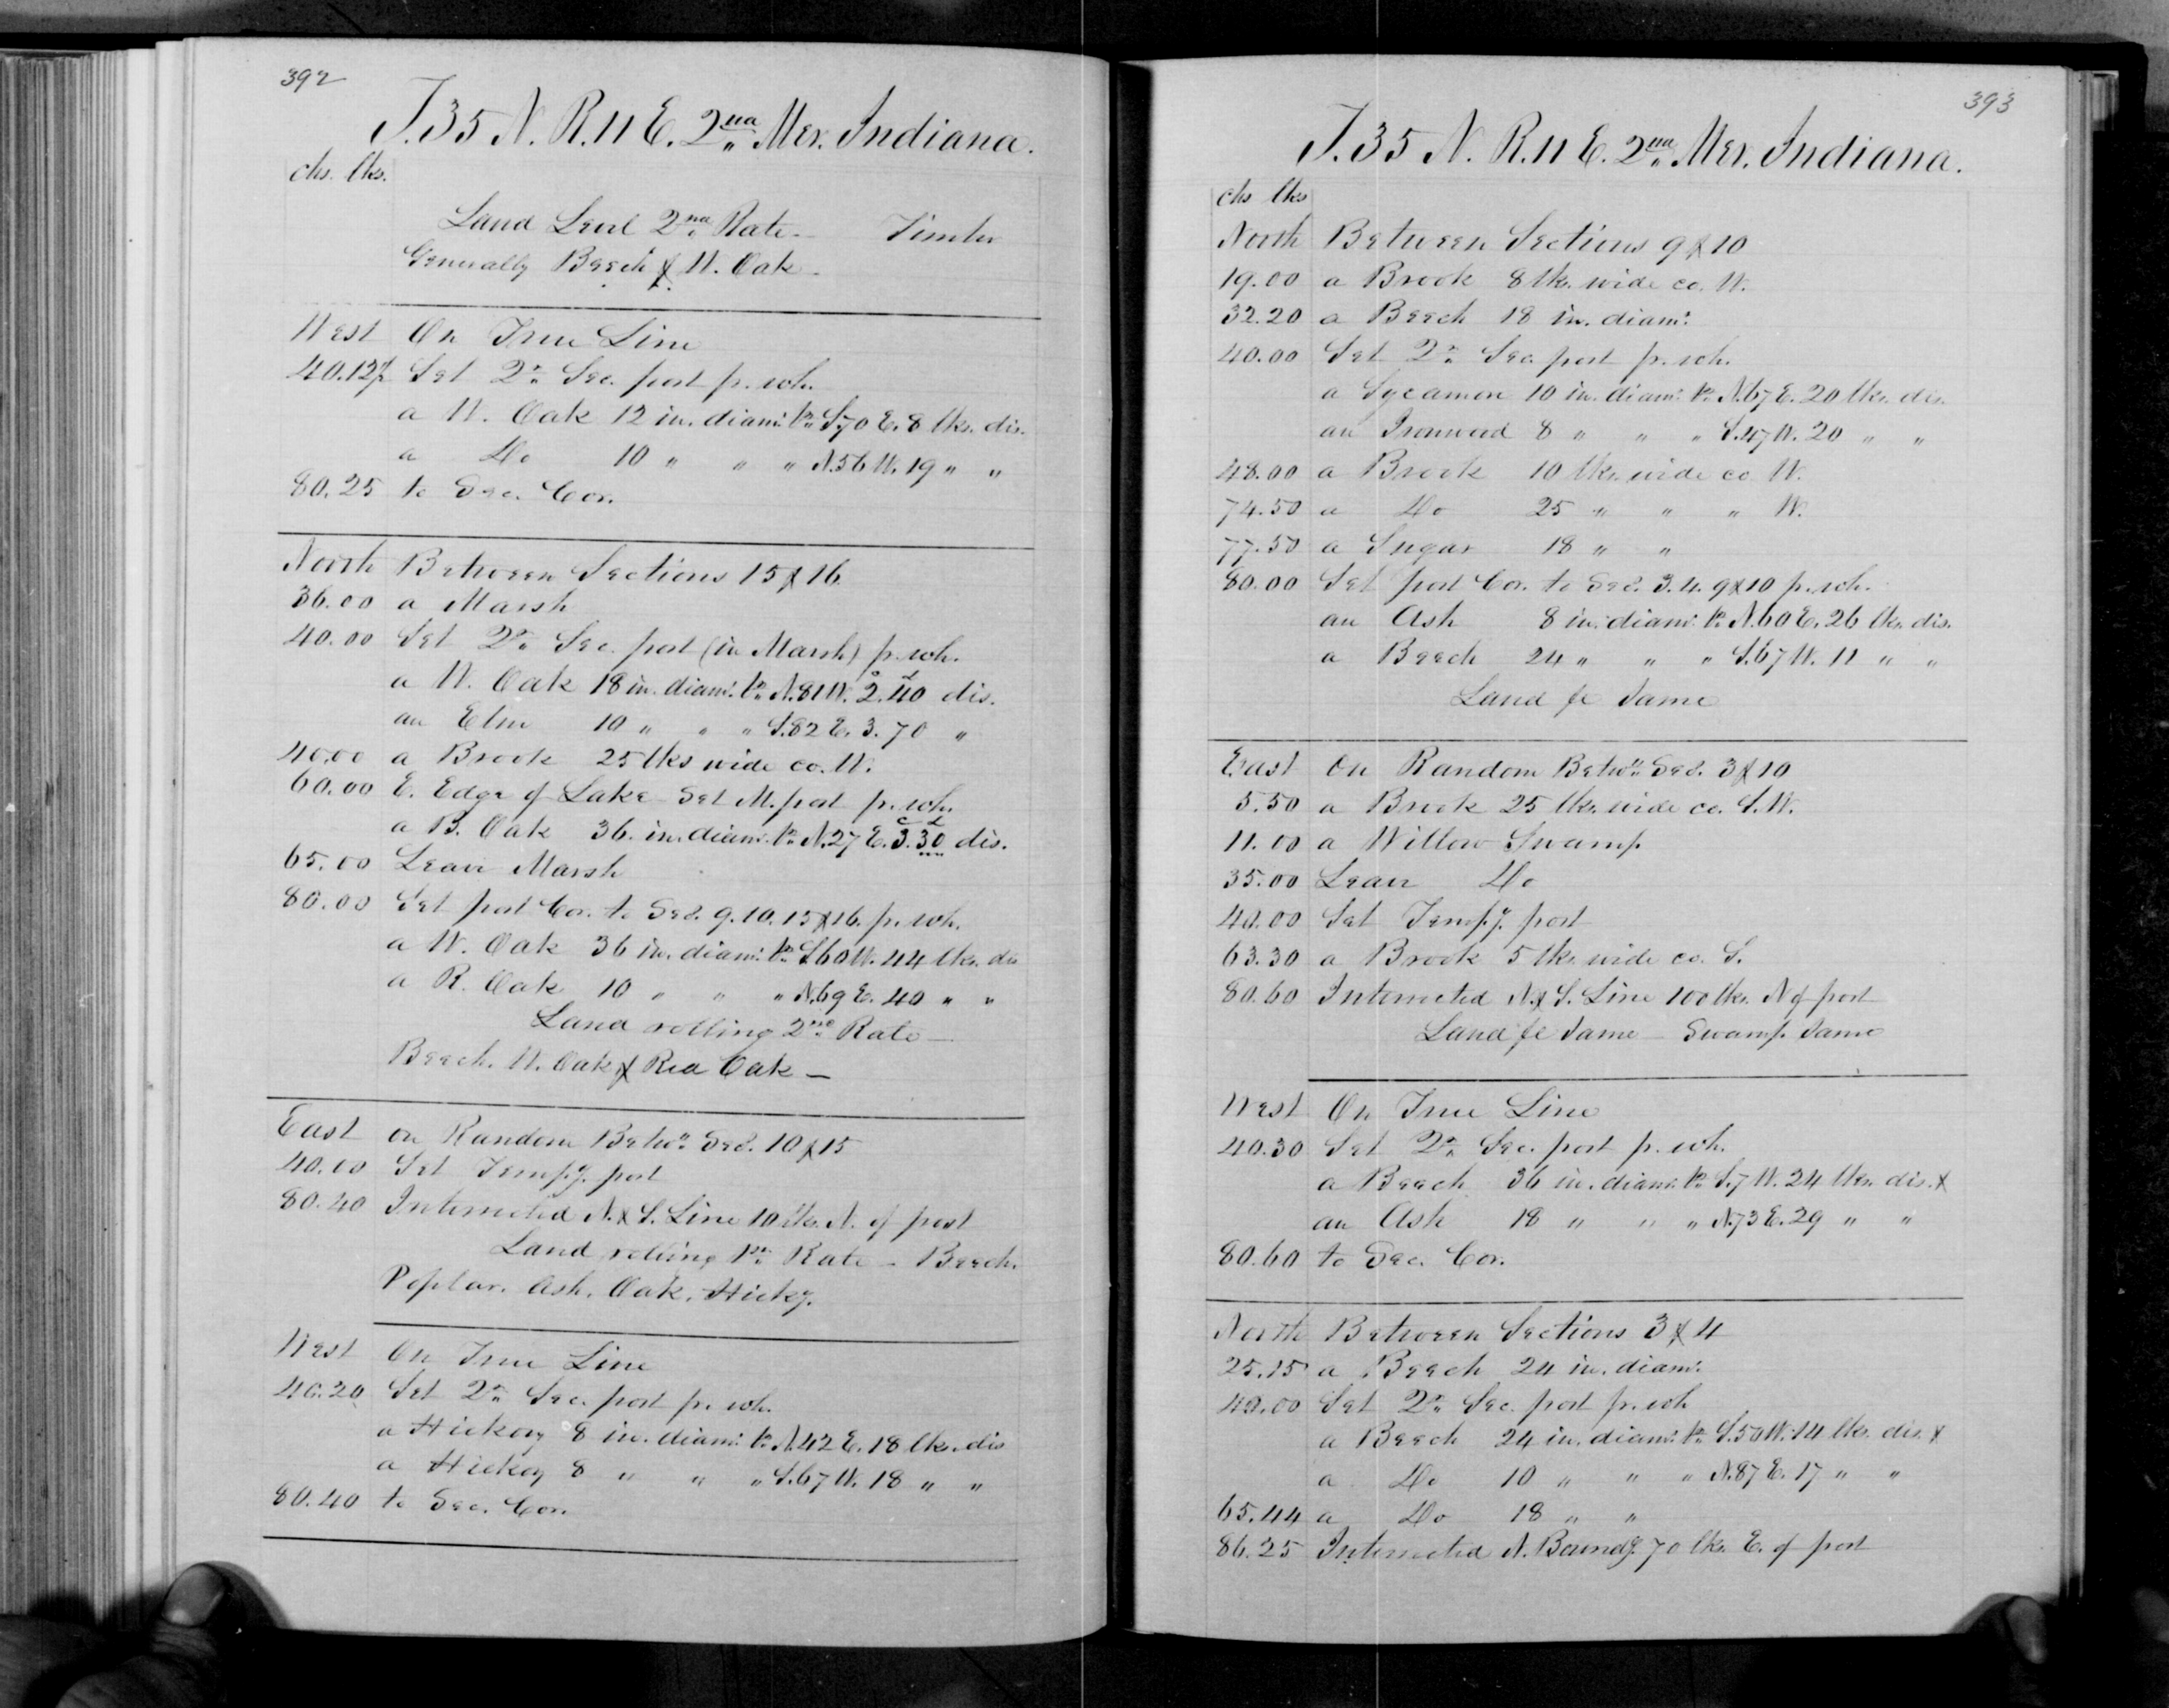 392
T. 35 N. R. 11 E. 2nd Mer. Indiana.
chs. lks.
Land Level 2nd Rate - Timber
Generally Beech & W. Oak -
West On True Line
40.12½ Set ¼ Sec. post p. wh.
a W. Oak 12 in. diam. br. S. 70 E. 8 lks. dis.
a Do 10 " " " N. 56 W. 19 " "
80.25 to Sec. Cor.
North Between Sections 15 & 16
36.00 a Marsh
40.00 Set ¼ Sec. post (in Marsh) p. wh.
a W. Oak 18 in. diam. br. N. 81 W. 2.40 dis.
an Elm 10 " " " S. 82 E. 3.70 "
40.00 a Brook 25 lks wide co. W.
60.00 E. Edge of Lake Set M. post p. wh.
a B. Oak 36. in. diam. br. N. 27 E. 3.30 dis.
65.00 Leave Marsh
80.00 Set post Cor. to Secs. 9. 10. 15 & 16. p. wh.
a W. Oak 36 in. diam. br. S. 60 W. 44 lks. dis
a R. Oak 10 " " " N. 69 E. 40 " "
Land rolling 2nd Rate -
Beech. W. Oak & Red Oak -
East on Random Betwn. Secs. 10 & 15
40.00 Set Tempy. post
80.40 Intersected N. & S. Line 10 lks. N. of post
Land rolling 1st Rate - Beech.
Poplar. Ash. Oak. Hicky.
West On True Line
40.20 Set ¼ Sec. post p. wh.
a Hickory 8 in. diam. br. N. 42 E. 18 lks. dis
a Hickoy 8 " " " S. 67 W. 18 " "
80.40 to Sec. Cor.
393
T. 35 N. R. 11 E. 2nd Mer. Indiana.
chs lks
North Between Sections 9 & 10
19.00 a Brook 8 lks. wide co. W.
32.20 a Beech 18 in. diam.
40.00 Set ¼ Sec. post p. wh.
a Sycamore 10 in. diam. br. N. 67 E. 20 lks. dis.
an Ironwood 8 " " " S. 47 W. 20 " "
48.00 a Brook 10 lks. wide co. W.
74.50 a Do 25 " " " W.
77.50 a Sugar 18 " "
80.00 Set post Cor. to Secs. 3. 4. 9 & 10 p. wh.
an Ash 8 in. diam. br. N. 60 E. 26 lks. dis.
a Beech 24 " " " S. 67 W. 11 " "
Land &c Same
East On Random Betwn. Secs. 3 & 10
5.50 a Brook 25 lks. wide co. S. W.
11.00 a Willow Swamp
35.00 Leave Do
40.00 Set Tempy. post
63.30 a Brook 5 lks. wide co. S.
80.60 Intersected N. & S. Line 100 lks. N of post
Land &c Same - Swamp Same
West On True Line
40.30 Set ¼ Sec. post p. wh.
a Beech 36 in. diam. br. S. 7 W. 24 lks. dis. &
an Ash 18 " " " N. 73 E. 29 " "
80.60 to Sec. Cor.
North Between Sections 3 & 4
25.15 a Beech 24 in. diam.
40.00 Set ¼ Sec. post p. wh
a Beech 24 in. diam. br. S. 50 W. 14 lks. dis. &
a Do 10 " " " N. 87 E. 17 " "
65.44 a Do 18 " "
86.25 Intersected N. Boundy. 70 lks. E. of post